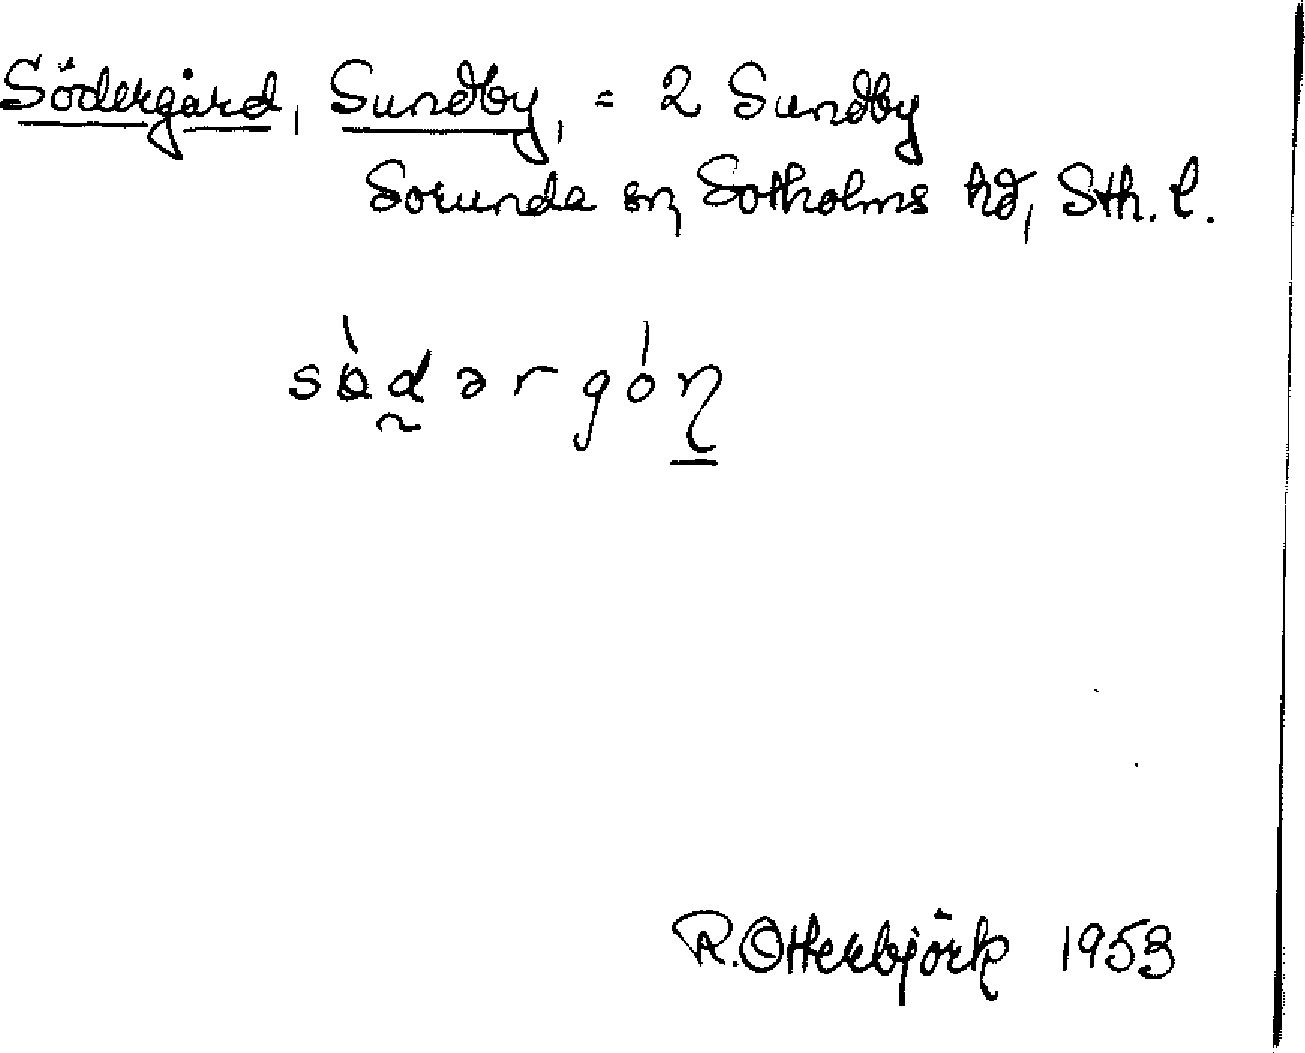 Södergård, Sundby, = 2 Sundby
Sorunda sn, Sotholms hd, Sth. l.
R. Otterbjörk 1953